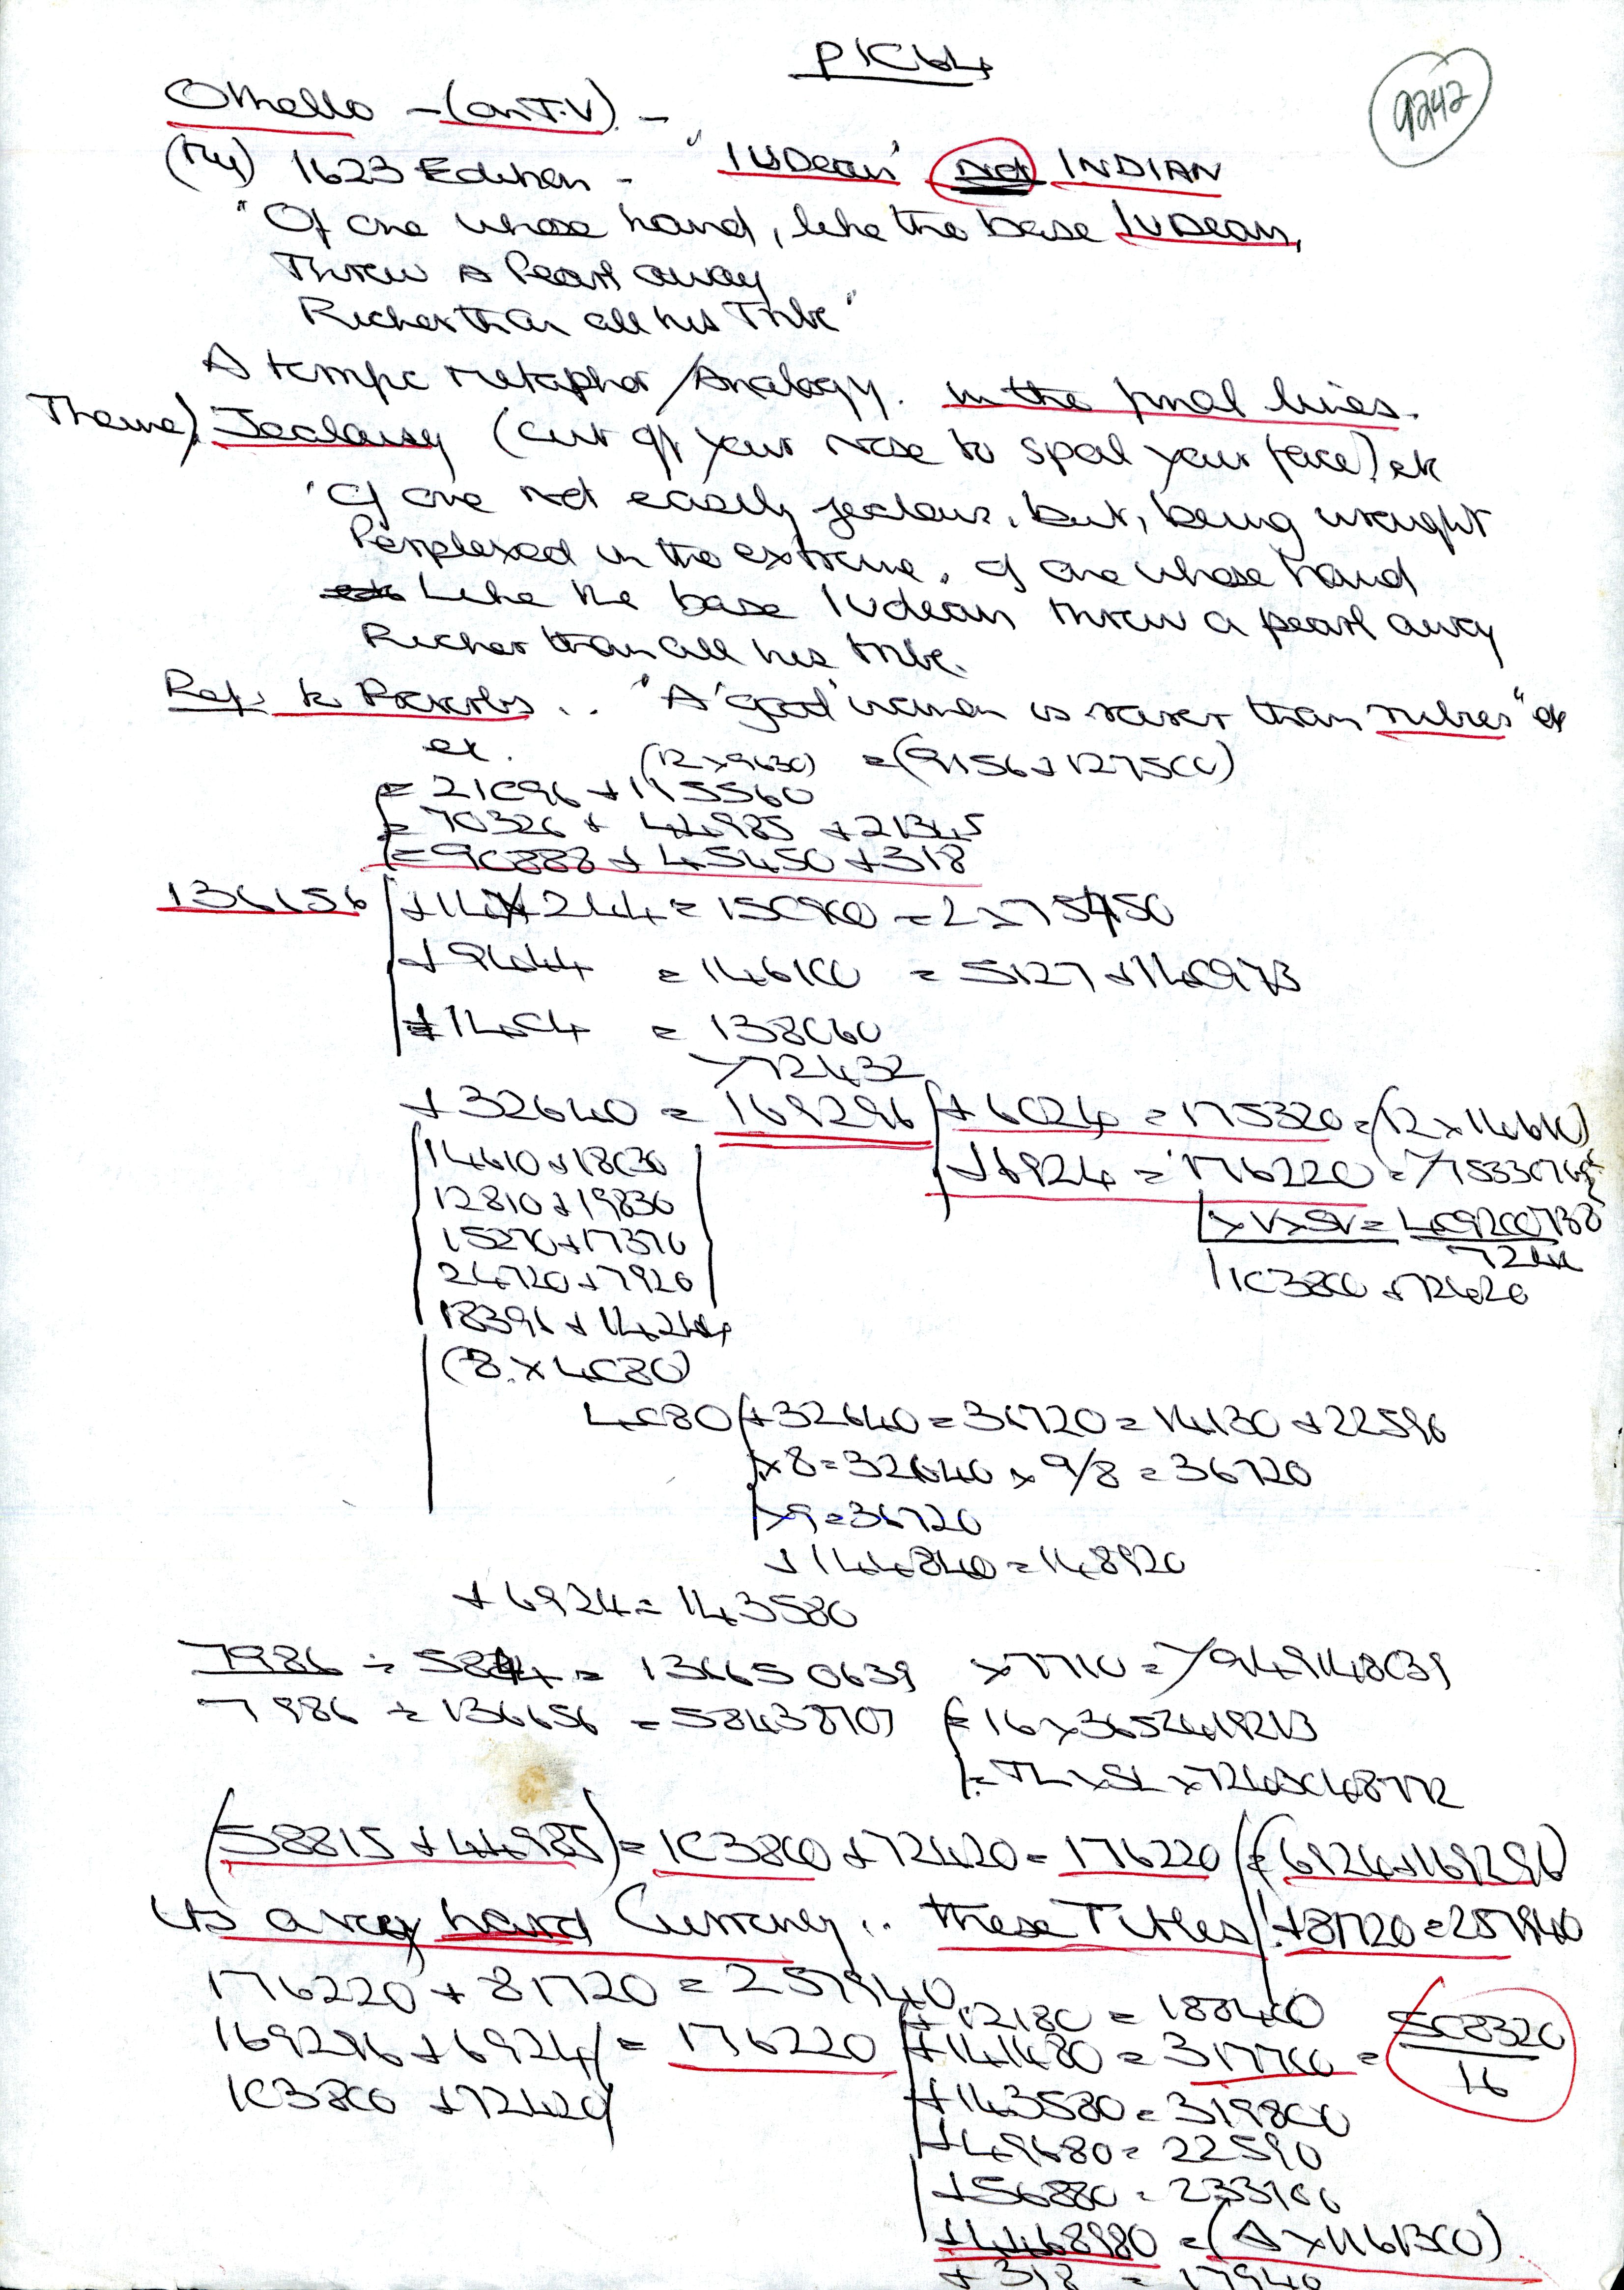 PIC64
9242
Othello - (on T.V) -
(My) 1623 Edition - "IUDean" Not INDIAN
"Of one whose hand, like the base IUDean,
Threw a Pearl away
Richer than all his Tribe"
A metaphor / Analogy. in the final lines.
Theme) Jealousy (cut off your nose to spoil your face) etc
'Of one not easily jealous, but, being wrought
Perplexed in the extreme. of one whose hand
Like the base Iudean threw a pearl away
Richer than all his tribe.
Ref. to Proverbs .. "A 'good' woman is rarer than rubies" etc
ex. (12 x 9630) = (9156 + 127500)
= 21096 + 115560
= 70326 + 44985 + 21345
= 90888 + 45450 + 318
136656 + 14244 = 150900 = 2 x 75450
+ 9444 = 146100 = 5127 + 140973
+ 1404 = 138060
72432
+ 32640 = 169296 + 6024 = 175320 = (12 x 14610)
14610 + 18030 + 6924 = 176220
12810 + 19830
15270 + 17370
24720 + 7920 103800 + 72420
18396 + 14244
(8 x 4080)
4080 + 32640 = 36720 = 14130 + 22590
x 8 = 32640 x 9/8 = 36720
x 9 = 36720
+ 144840 = 148920
+ 6924 = 143580
7986 ÷ 5844 = 136650639 x 7710
7986 ÷ 136656 = 58438707 = 16 x 3652419213
= TL x SL x
(58815 + 44985) = 103800 + 72420 = 176220 = (6924 + 169296)
Its a very hard Currency .. these Titles + 81720 = 257940
176220 + 81720 = 257940
+ 12180 = 188400
169296 + 6924 = 176220 + 141480 = 317700 = 508320
16
103800 + 72420 + 143580 = 319800
+ 49680 = 22590
+ 56880 = 233100
+ 4468980 = (A x 1161300)
+ 318 = 17940